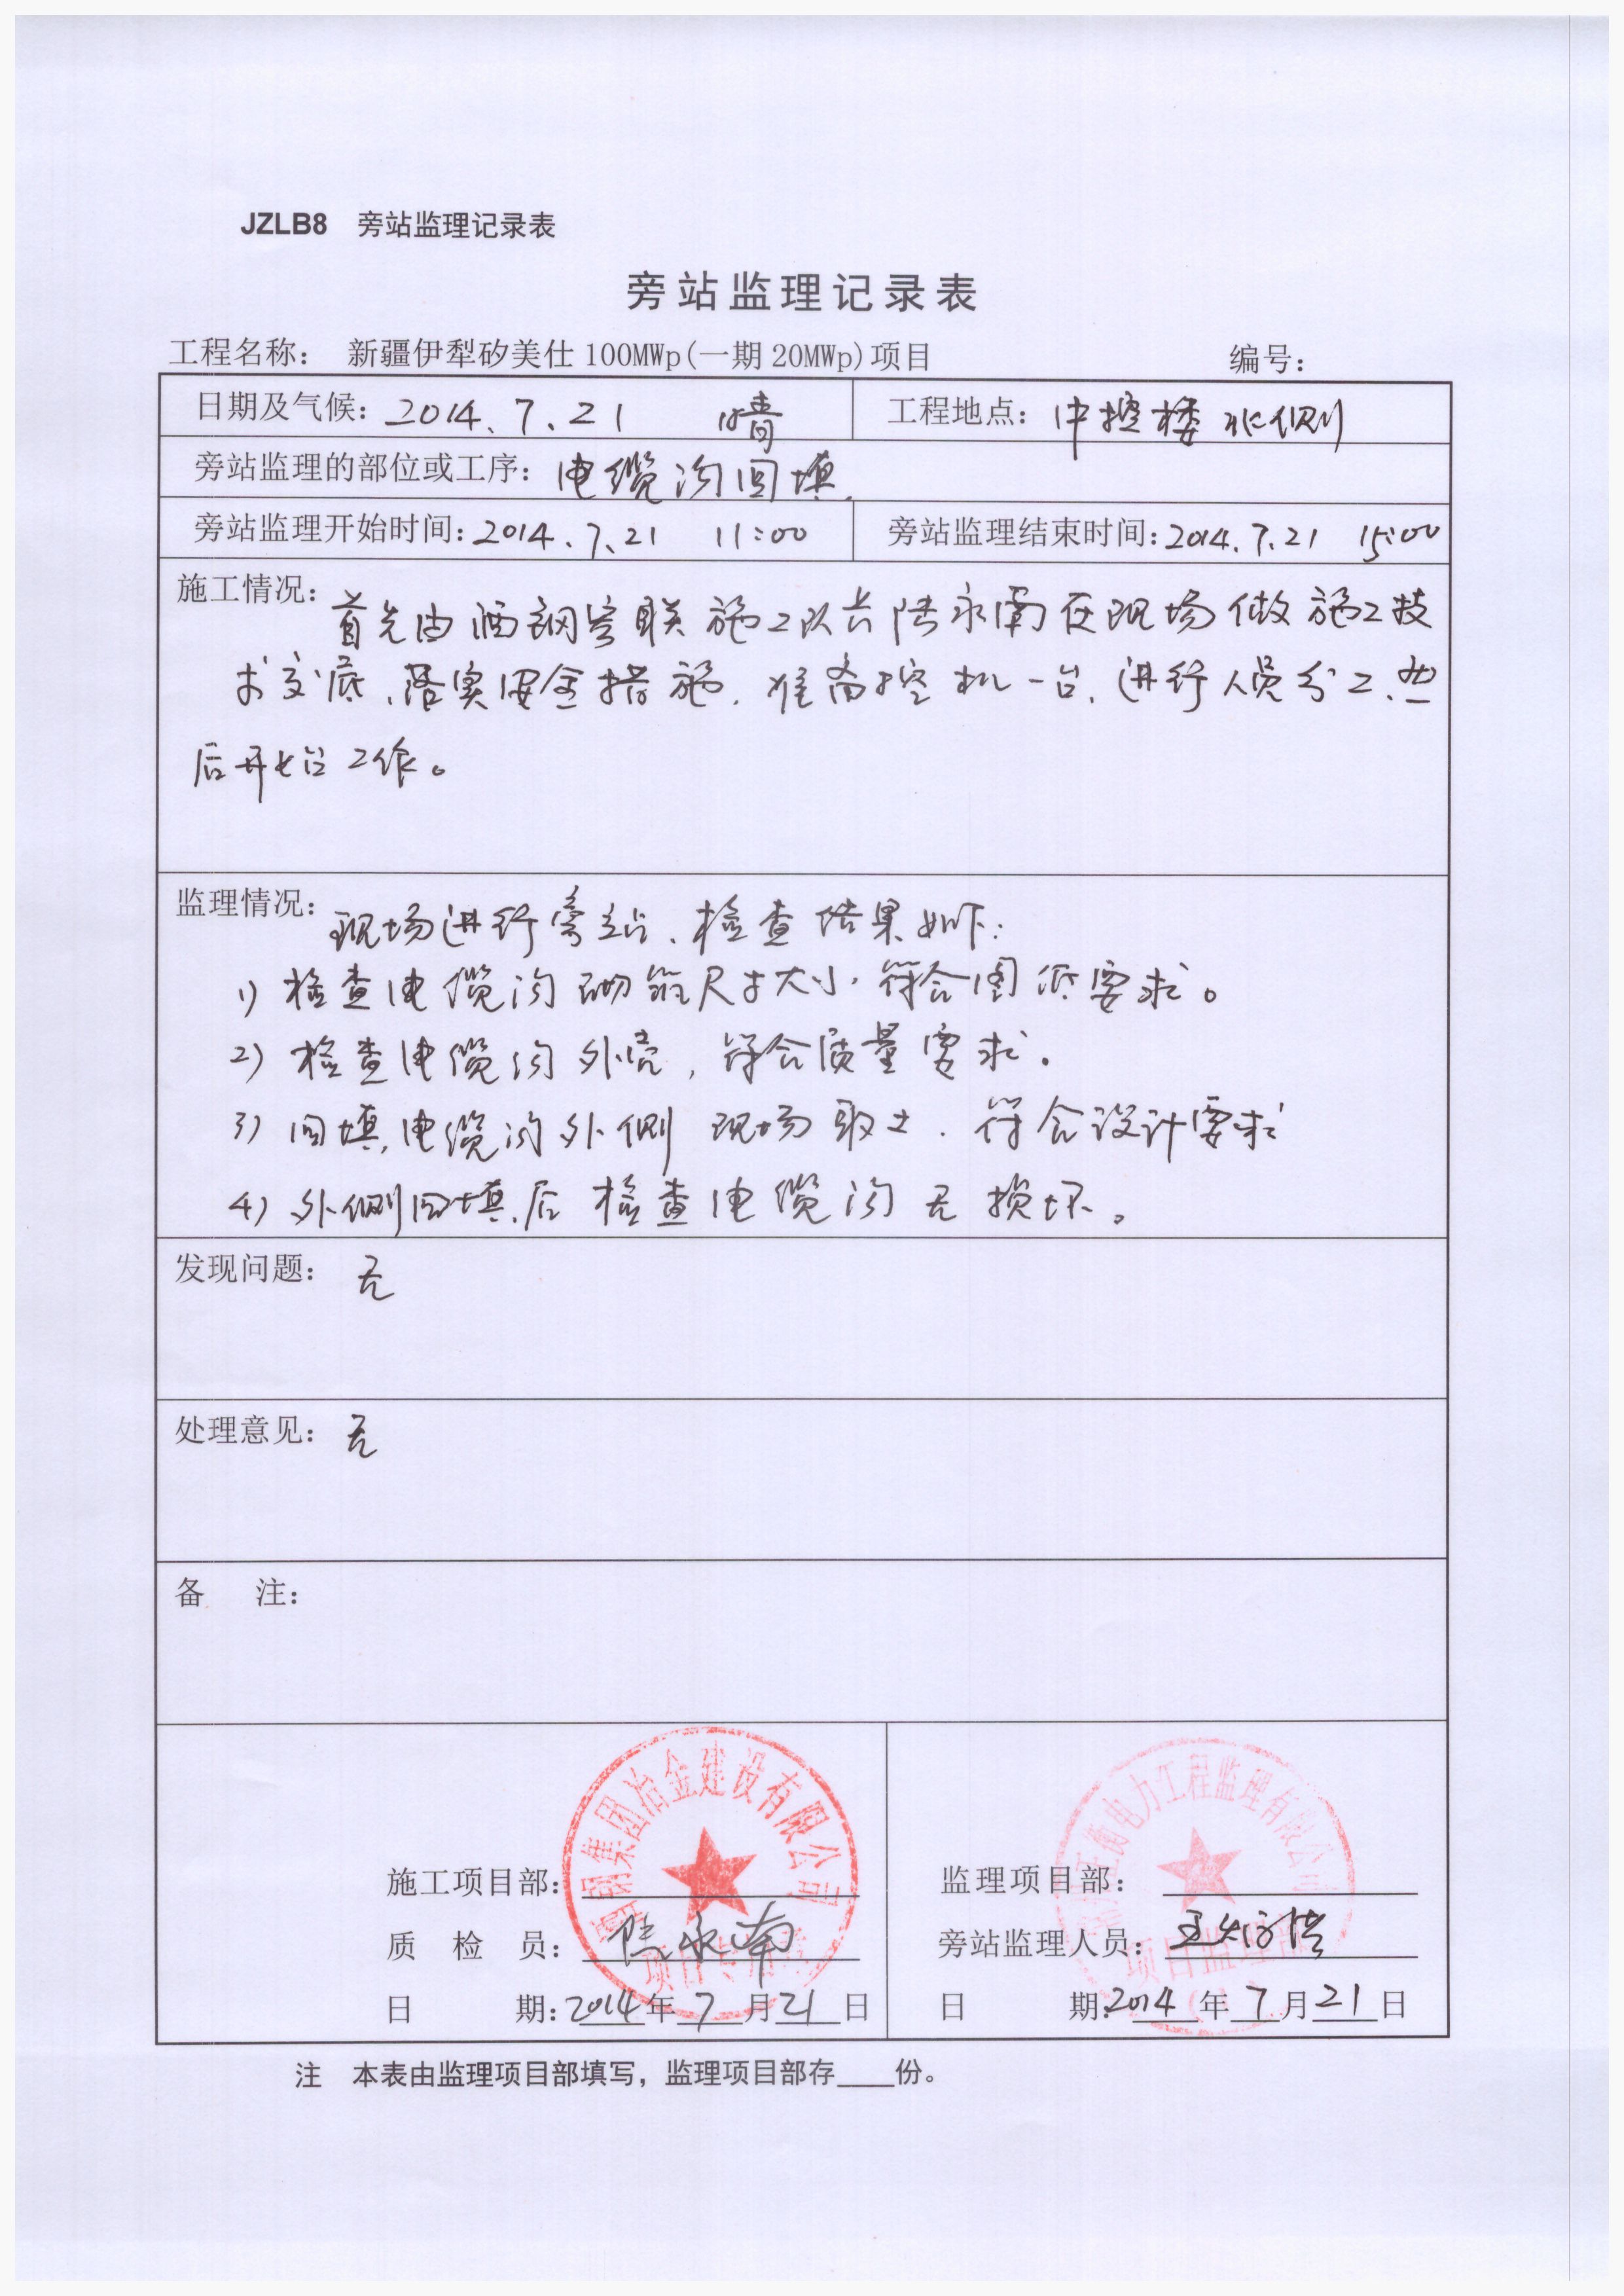 JZLB8 旁站监理记录表
旁站监理记录表
工程名称： 新疆伊犁矽美仕100MWp(一期20MWp)项目 编号：
日期及气候：2014.7.21 晴 工程地点：中控楼北侧
旁站监理的部位或工序：电缆沟回填.
旁站监理开始时间：2014.7.21 11:00 旁站监理结束时间：2014.7.21 15:00
施工情况：首先由酒钢 联施工队长陆永南在现场做施工技
术交底、落实安全措施.准备挖机一台.进行人员分工.然
后开始工作。
监理情况：现场进行旁站、检查结果如下：
1) 检查电缆沟砌筑尺寸大小.符合图纸要求。
2) 检查电缆沟外壳，符合质量要求.
3) 回填电缆沟外侧 现场取土.符合设计要求
4) 外侧回填后 检查电缆沟无损坏。
发现问题：无
处理意见：无
备 注：
酒钢集团冶金建设有限公司
电力工程监理有限公司
项目监理部
施工项目部： 监理项目部：
质 检 员：陆永南 旁站监理人员：
日 期：2014年7月21日 日 期：2014年7月21日
注 本表由监理项目部填写，监理项目部存____份。